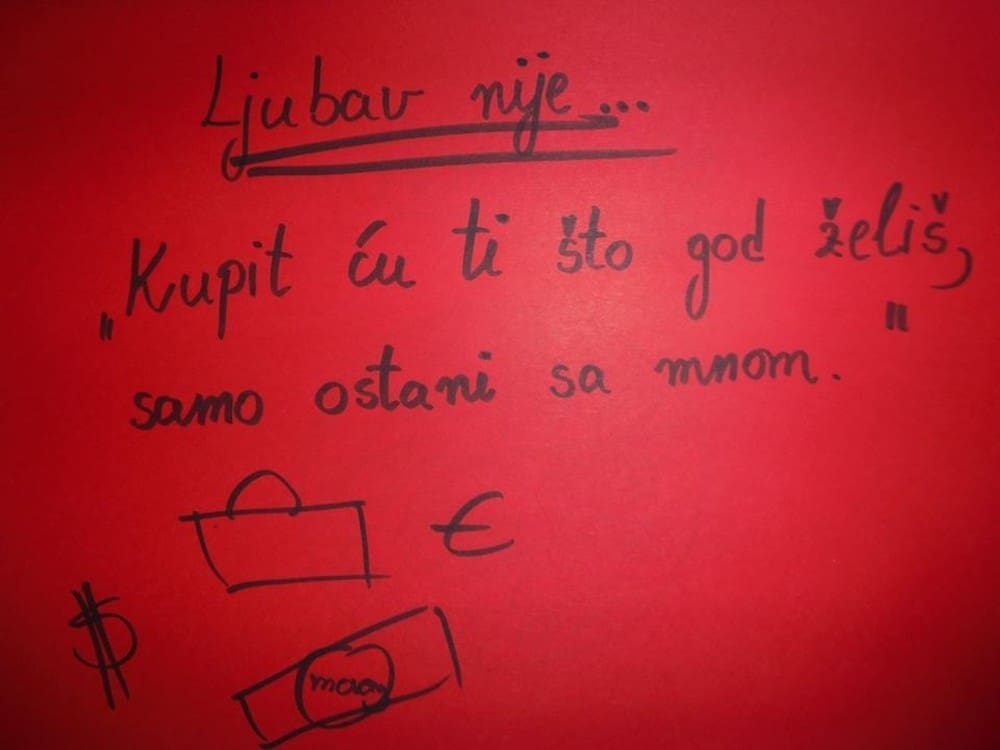 Ljubav nije...
„Kupit ću ti što god želiš,
samo ostani sa mnom."
€
$